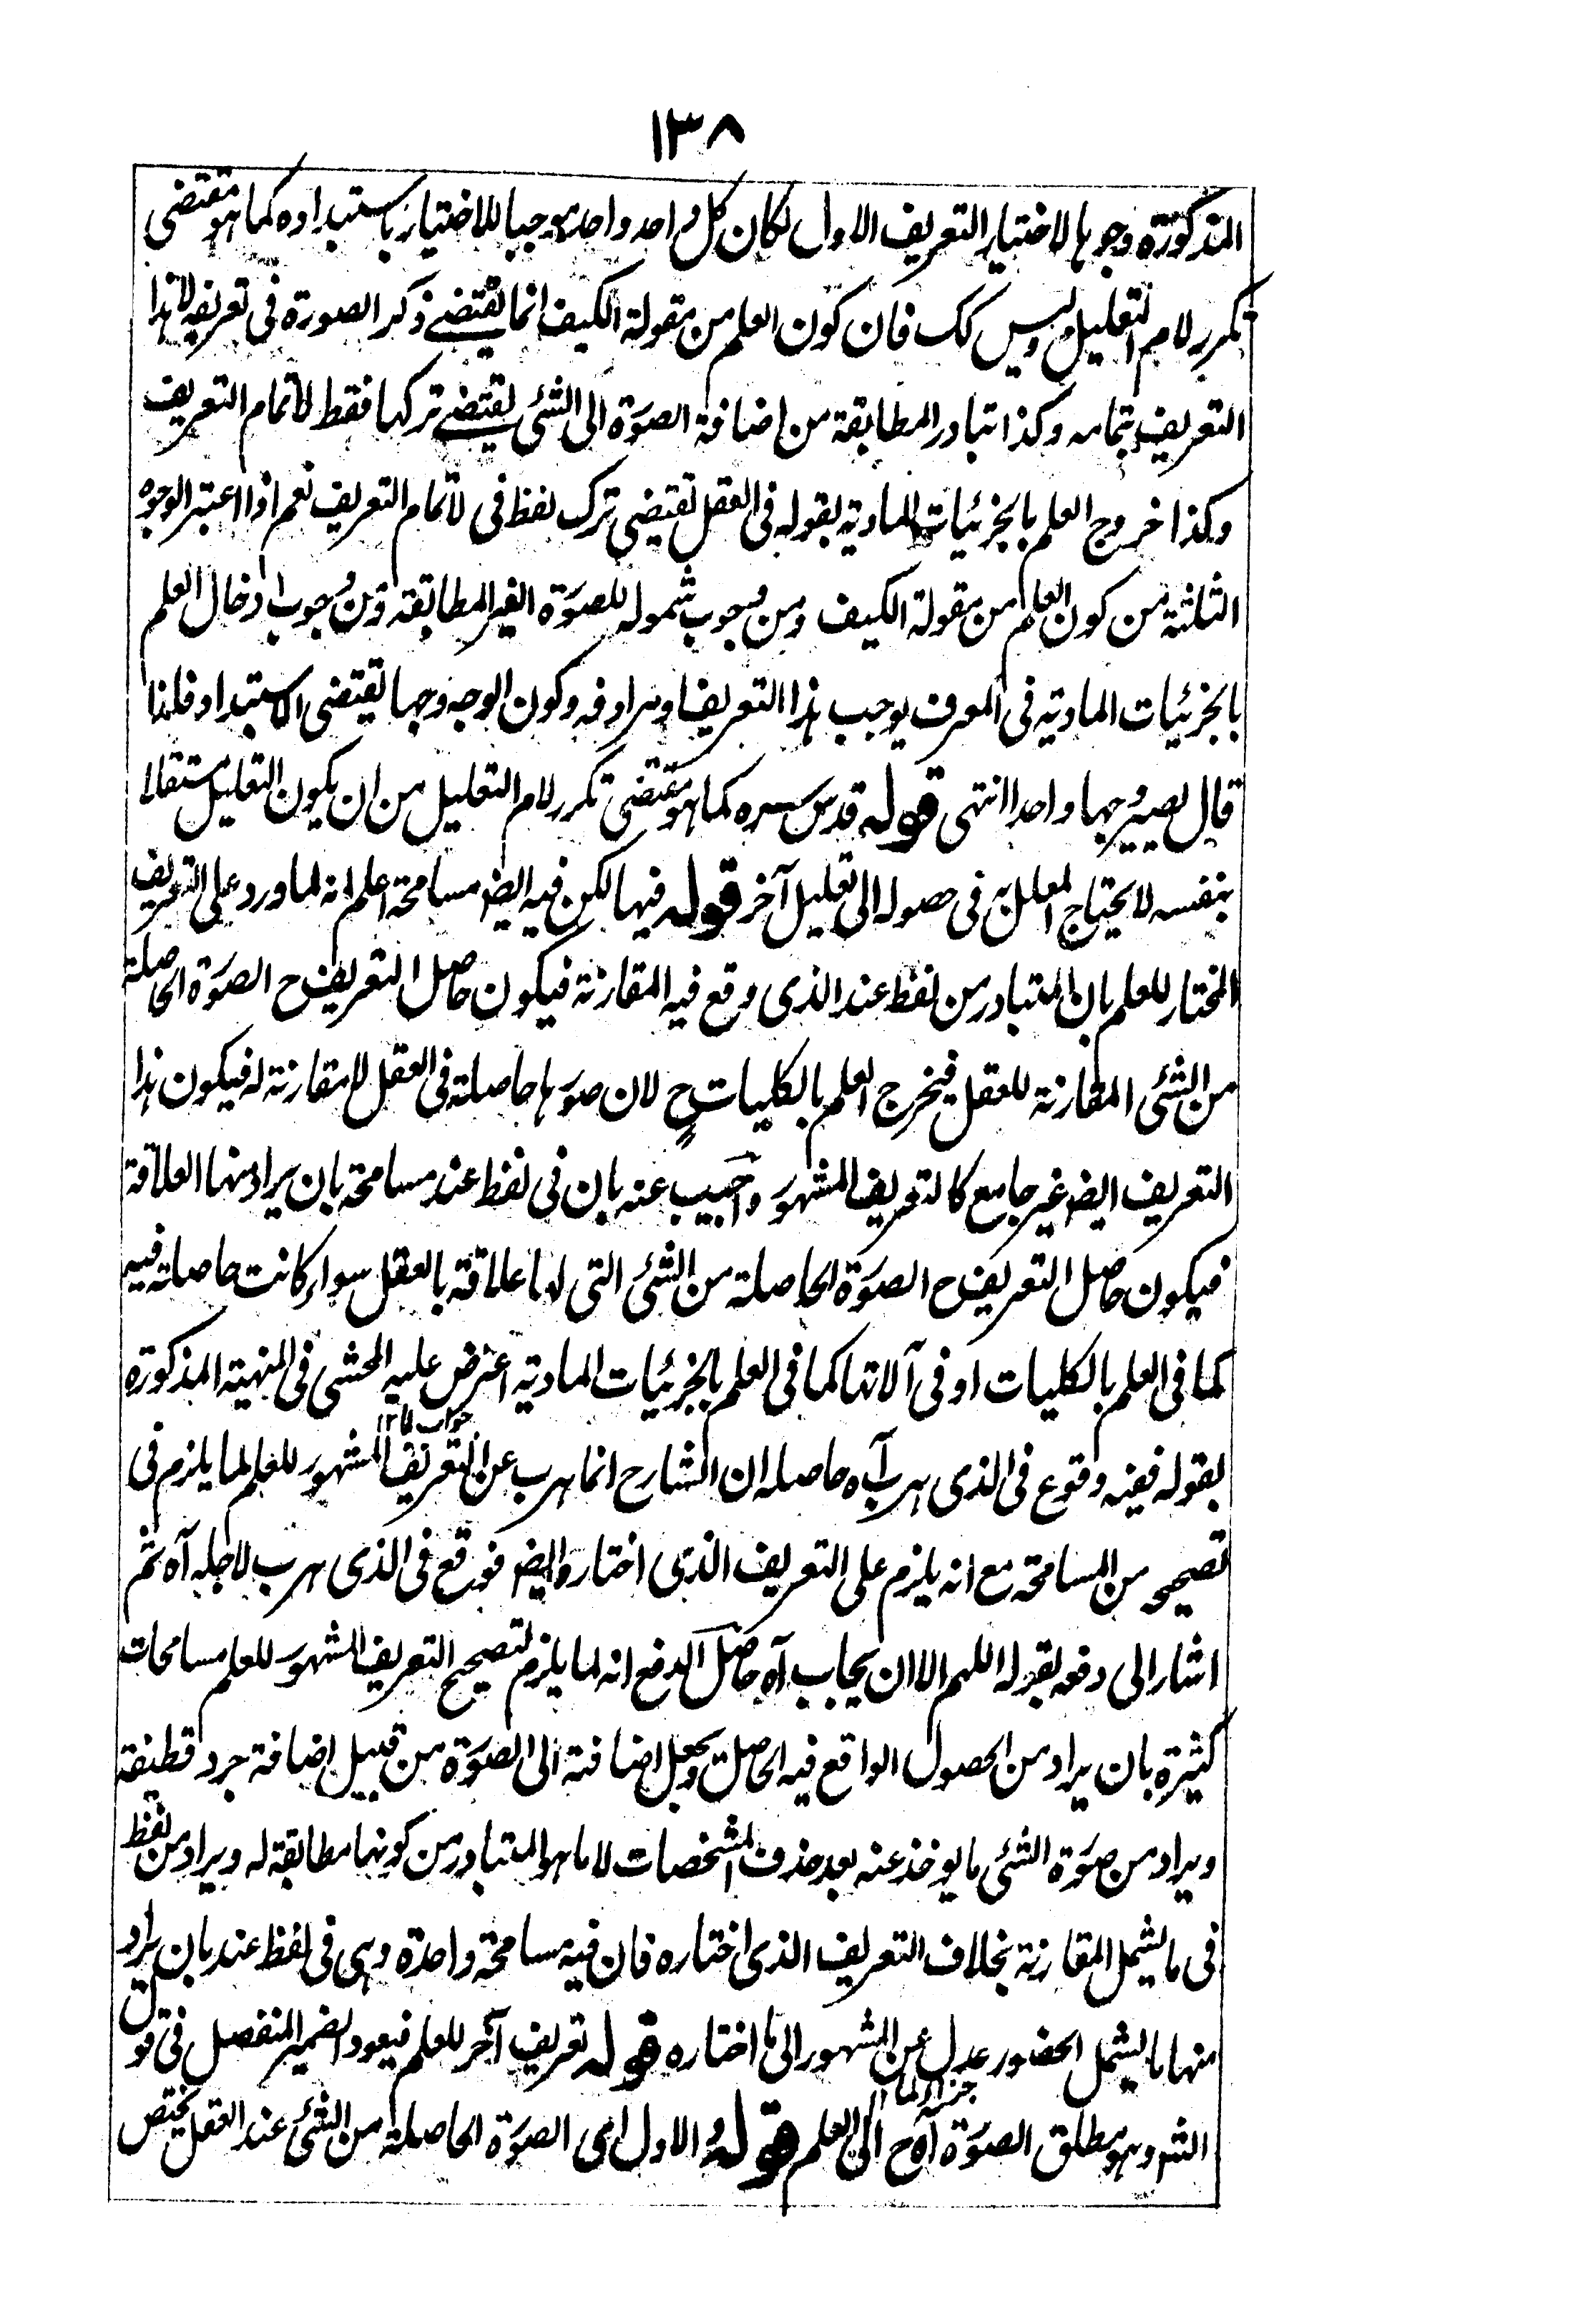 ١٣٨
المذكورة وجوها لاختيار التعريف الاول لكان كل واحد واحد موجبا للاختيار باستبداده كما هو مقتضى
تكرر لام التعليل وليس كك فان كون العلم من مقولة الكيف انما يقتضى ذكر الصورة فى تعريفه لا هذا
التعريف بتمامه وكذا تبادر المطابقة من اضافة الصورة الى الشئ يقتضى تركها فقط لا تمام التعريف
وكذا خروج العلم بالجزئيات المادية بقوله فى العقل تقتضى ترك لفظ فى لا تمام التعريف نعم اذا اعتبر الوجوه
الثلثة من كون العلم من مقولة الكيف ومن وجوب شموله للصورة الغير المطابقة ومن وجوب ادخال العلم
بالجزئيات المادية فى المعرف يوجب هذا التعريف او مرادفه وكون الوجه وجها يقتضى الاستبداد فلذا
قال يصير وجها واحدا انتهى قوله قدس سره كما هو مقتضى تكرر لام التعليل من ان يكون التعليل مستقلا
بنفسه لا يحتاج المعلل به فى حصوله الى تعليل آخر قوله فيها لكن فيه ايض مسامحة اعلم انه لما ورد على التعريف
المختار للعلم بان المتبادر من لفظ عند الذى وقع فيه المقارنة فيكون حاصل التعريف ح الصورة الحاصلة
من الشئ المقارنة للعقل فيخرج العلم بالكليات ح لان صورها حاصلة فى العقل لا مقارنة له فيكون هذا
التعريف ايض غير جامع كالتعريف المشهور واجيب عنه بان فى لفظ عند مسامحة بان يراد منها العلاقة
فيكون حاصل التعريف ح الصورة الحاصلة من الشئ التى لها علاقة بالعقل سواء كانت حاصلة فيه
كما فى العلم بالكليات او فى آلاتها كما فى العلم بالجزئيات المادية اعترض عليه المحشى فى المنهية المذكورة
بقوله ففيه وقوع فى الذى هرب آه حاصله ان الشارح انما هرب عن التعريف المشهور للعلم لما يلزم فى
جواب لما ١٢
تصحيحه من المسامحة مع انه يلزم على التعريف الذى اختاره ايض فوقع فى الذى هرب لاجله آه ثم
اشار الى دفعه بقوله اللهم الا ان يجاب آه حاصل الدفع انه لما يلزم لتصحيح التعريف المشهور للعلم مسامحات
كثيرة بان يراد من الحصول الواقع فيه الحاصل ويجعل اضافته الى الصورة من قبيل اضافة جرد قطيفة
ويراد من صورة الشئ ما يوخذ عنه بعد حذف المشخصات لا ما هو المتبادر من كونها مطابقة له ويراد من لفظ
فى ما يشمل المقارنة بخلاف التعريف الذى اختاره فان فيه مسامحة واحدة وهى فى لفظ عند بان يراد
منها ما يشمل الحضور عدل عن المشهور الى ما اختاره قوله تعريف آخر للعلم فيعود الضمير المنفصل فى قول
جزاء لما
الشر وهو مطلق الصورة آه ح الى العلم قوله الاول اى الصورة الحاصلة من الشئ عند العقل يختص